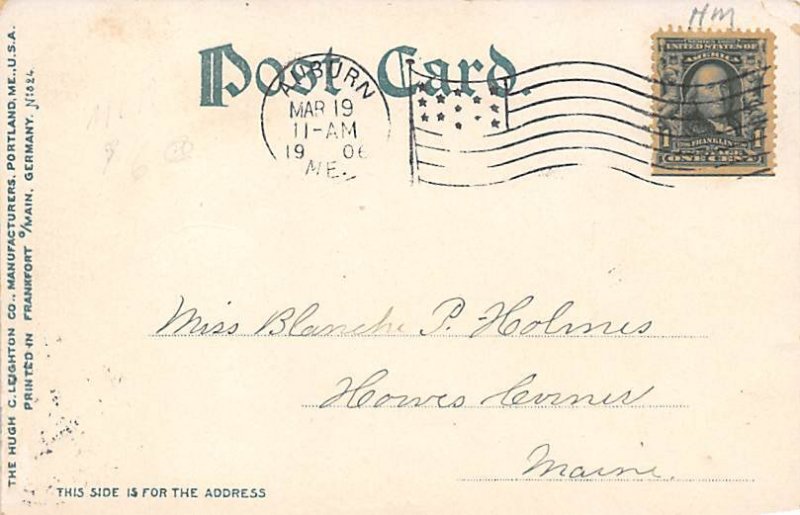 HM
Post Card.
AUBURN
MAR 19
11-AM
19 06
ME.
SERIES 1902
UNITED STATES OF
AMERICA
FRANKLIN
1 POSTAGE 1
ONE CENT
Miss Blanche P. Holmes
Howes Corner
Maine.
THIS SIDE IS FOR THE ADDRESS
THE HUGH C. LEIGHTON CO., MANUFACTURERS, PORTLAND, ME., U.S.A.
PRINTED IN FRANKFORT O/MAIN, GERMANY. No 824